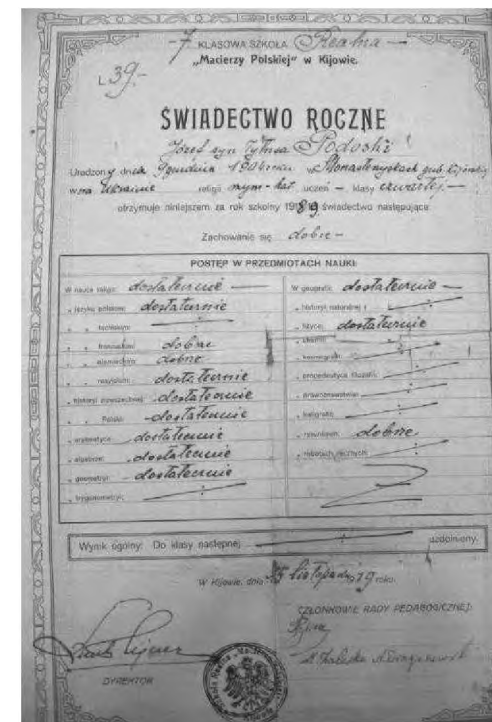 7 KLASOWA SZKOŁA Realna
„Macierzy Polskiej" w Kijowie.
L 39.-
ŚWIADECTWO ROCZNE
Józef syn Tytusa Podoski
Urodzony dnia Grudnia w Monasteryskach gub. Kijowskiej
w na Ukrainie religii rzym-kat. uczeń klasy czwartej
otrzymuje niniejszem za rok szkolny 19 świadectwo następujące:
Zachowanie się dobre
POSTĘP W PRZEDMIOTACH NAUKI:
W nauce religii: dostatecznie
„ języku polskim: dostatecznie
„ „ łacińskim:
„ „ francuskim: dobrze
„ „ niemieckim: dobrze
„ „ rosyjskim: dostatecznie
„ historyi powszechnej: dostatecznie
„ „ Polski: dostatecznie
„ arytmetyce: dostatecznie
„ algebrze: dostatecznie
„ geometryi: dostatecznie
„ trygonometryi:
W geografii: dostatecznie
„ historyi naturalnej:
„ fizyce: dostatecznie
„ chemii:
„ kosmografii:
„ propedeutyce filozofii:
„ prawoznawstwie:
„ kaligrafii:
„ rysunkach: dobrze
„ robotach ręcznych:
Wynik ogólny: Do klasy następnej uzdolniony.
W Kijowie, dnia listopada 19 roku.
CZŁONKOWIE RADY PEDAGOGICZNEJ:
DYREKTOR